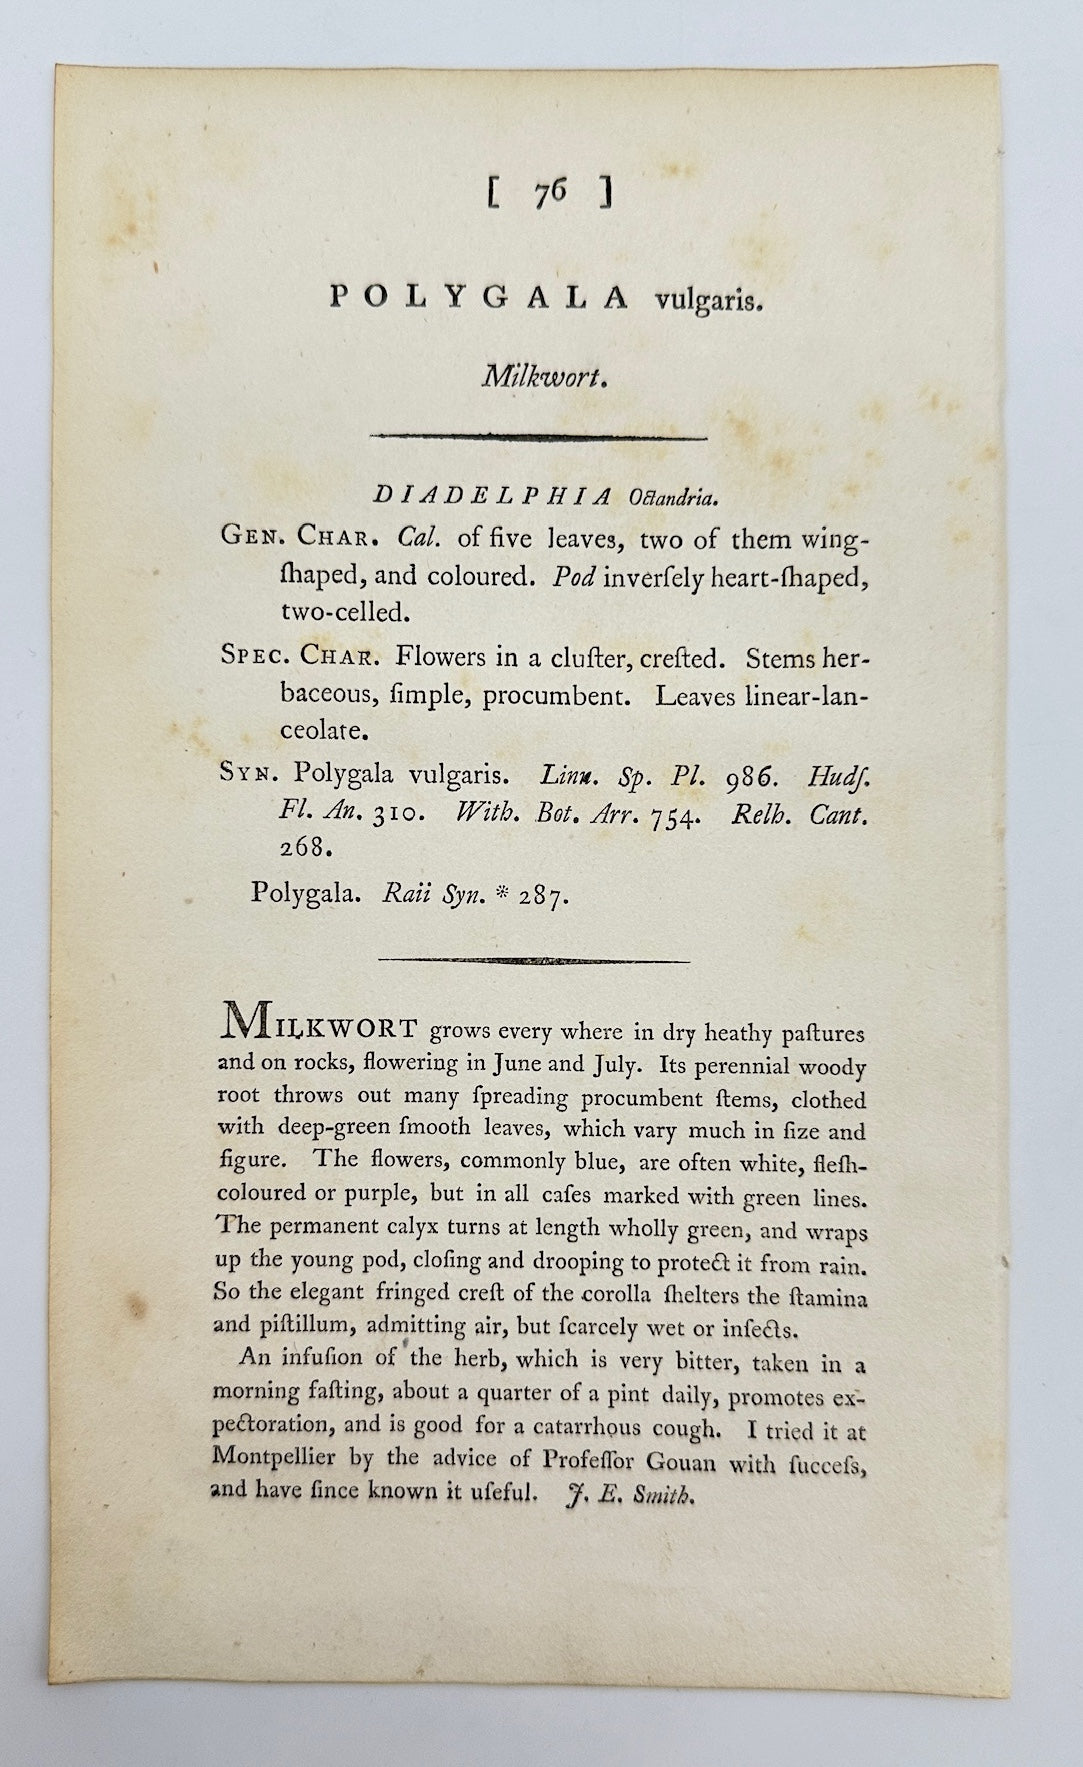 [ 76 ]
POLYGALA vulgaris.
Milkwort.
DIADELPHIA Octandria.
GEN. CHAR. Cal. of five leaves, two of them wing-
ſhaped, and coloured. Pod inverſely heart-ſhaped,
two-celled.
SPEC. CHAR. Flowers in a cluſter, creſted. Stems her-
baceous, ſimple, procumbent. Leaves linear-lan-
ceolate.
SYN. Polygala vulgaris. Linn. Sp. Pl. 986. Hudſ.
Fl. An. 310. With. Bot. Arr. 754. Relh. Cant.
268.
Polygala. Raii Syn. * 287.
MILKWORT grows every where in dry heathy paſtures
and on rocks, flowering in June and July. Its perennial woody
root throws out many ſpreading procumbent ſtems, clothed
with deep-green ſmooth leaves, which vary much in ſize and
figure. The flowers, commonly blue, are often white, fleſh-
coloured or purple, but in all caſes marked with green lines.
The permanent calyx turns at length wholly green, and wraps
up the young pod, cloſing and drooping to protect it from rain.
So the elegant fringed creſt of the corolla ſhelters the ſtamina
and piſtillum, admitting air, but ſcarcely wet or inſects.
An infuſion of the herb, which is very bitter, taken in a
morning faſting, about a quarter of a pint daily, promotes ex-
pectoration, and is good for a catarrhous cough. I tried it at
Montpellier by the advice of Profeſſor Gouan with ſucceſs,
and have ſince known it uſeful. J. E. Smith.